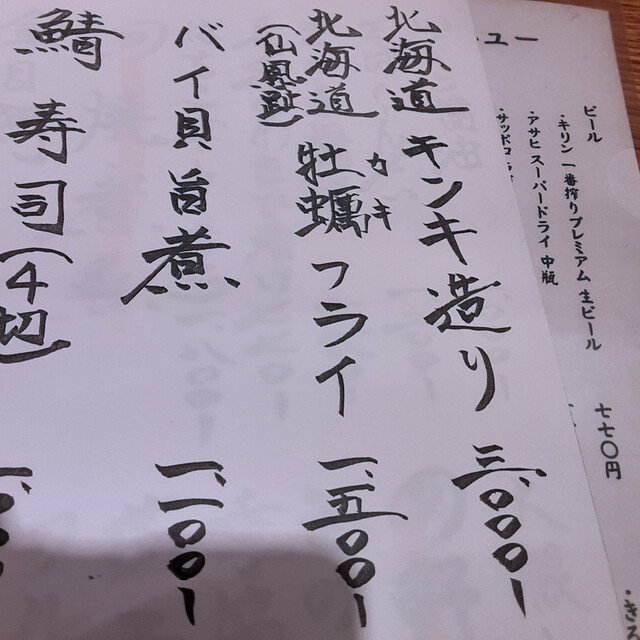 北海道 キンキ造り 三、〇〇〇ー
北海道 牡蠣フライ 一、五〇〇ー
カキ
(仙鳳趾)
バイ貝旨煮 一、一〇〇ー
鯖寿司(4切)
ニュー
ビール
・キリン一番搾りプレミアム 生ビール 七七〇円
・アサヒスーパードライ 中瓶
・サッポロ